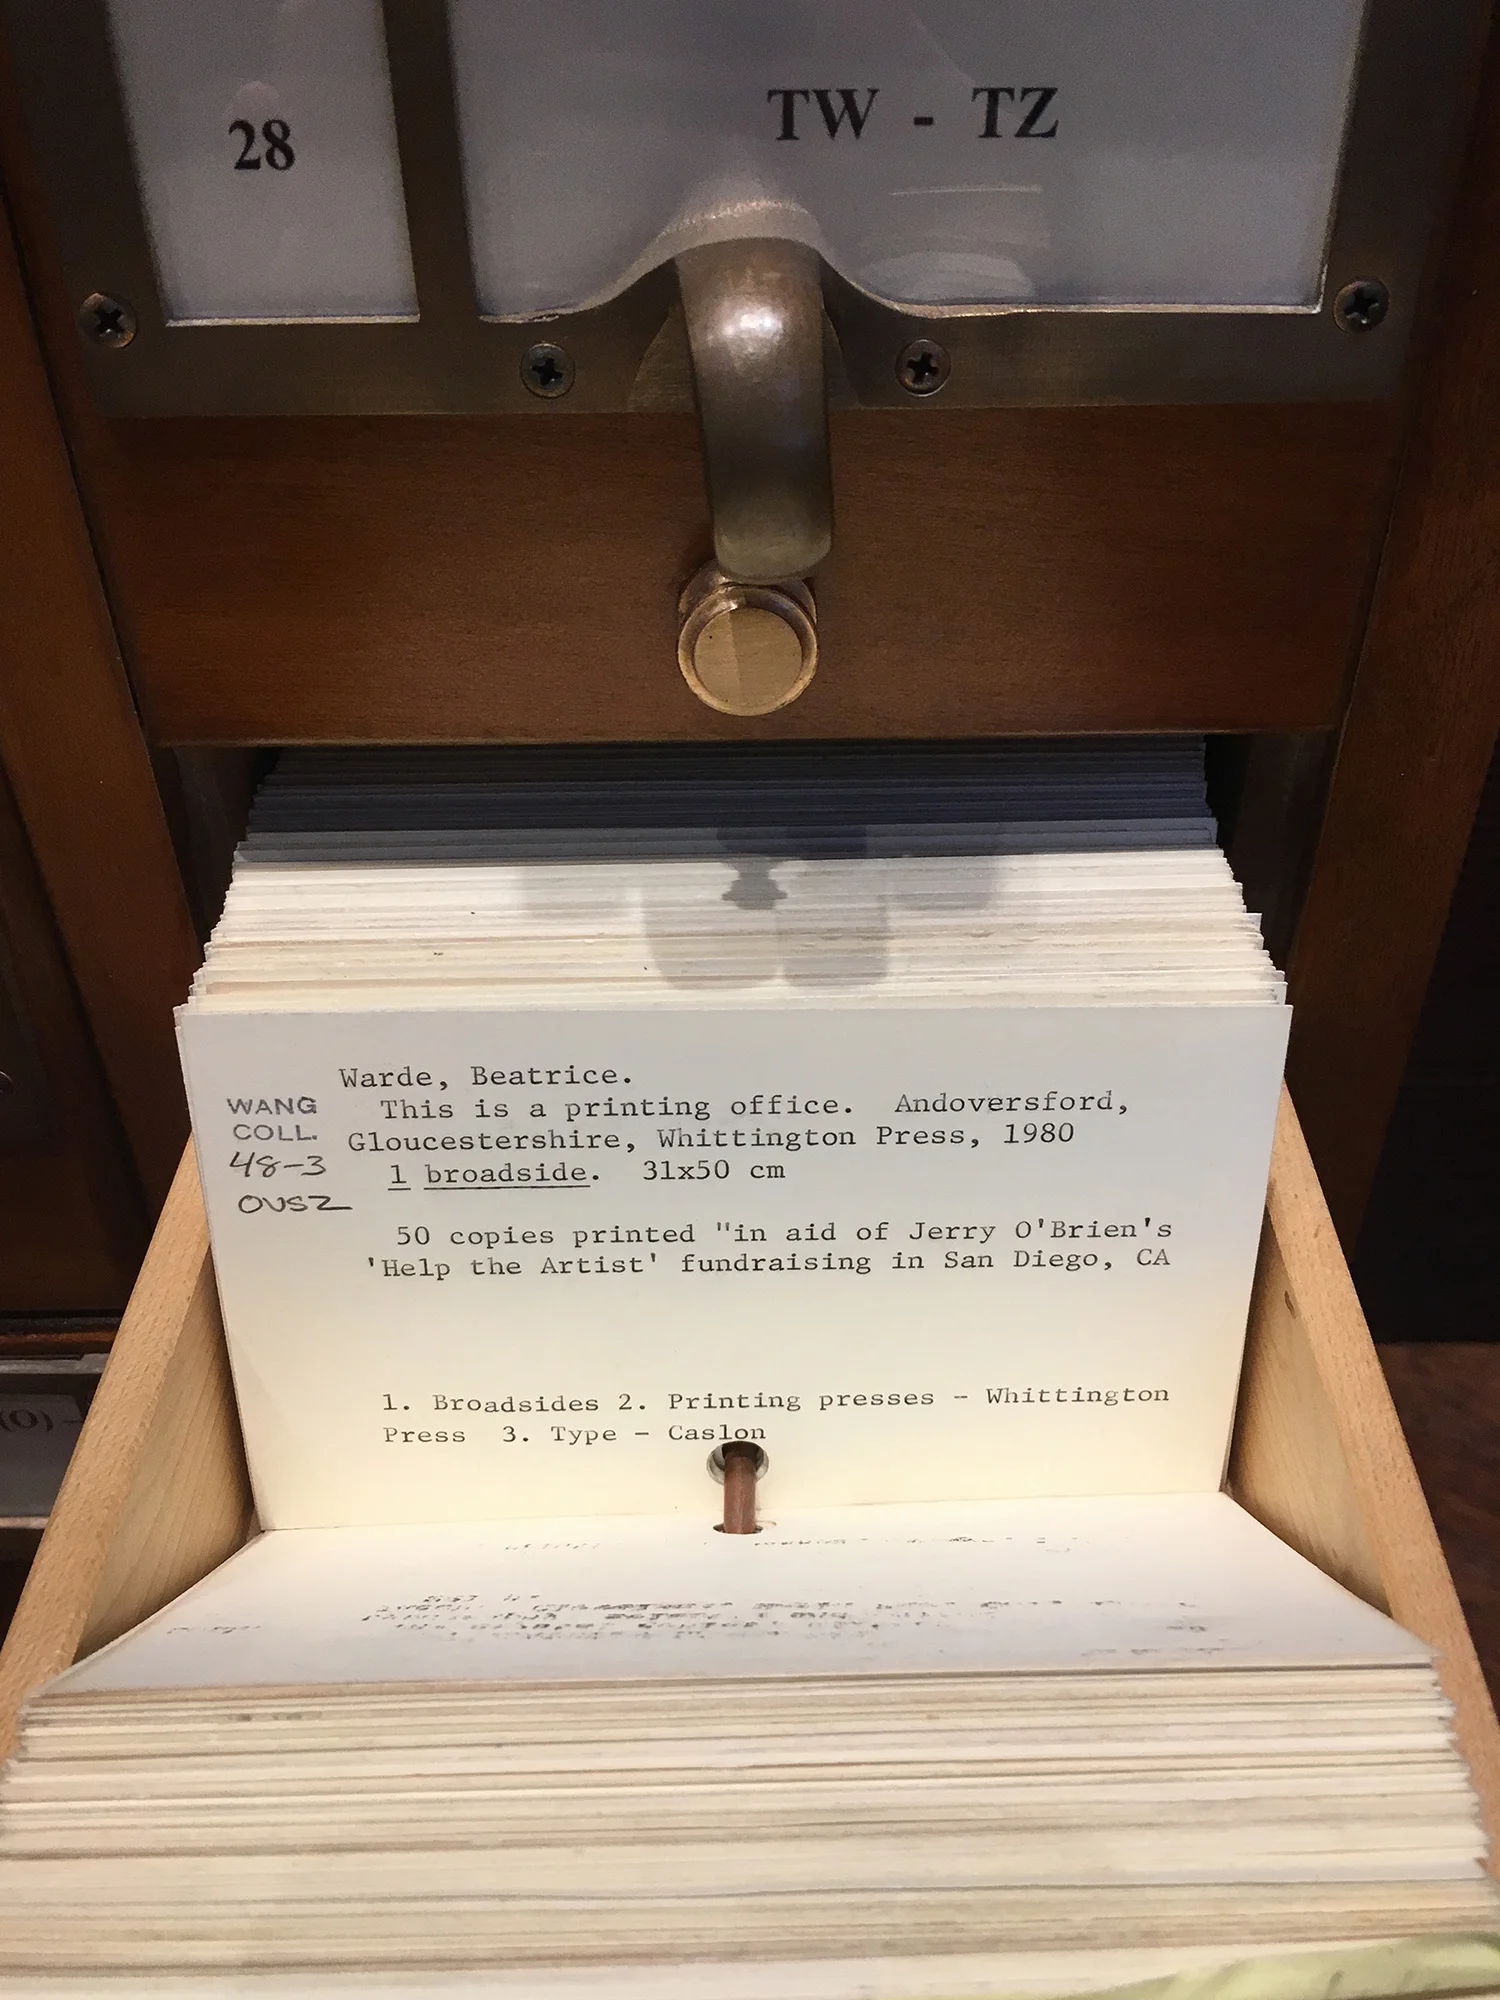 28
TW - TZ
Warde, Beatrice.
WANG
This is a printing office. Andoversford,
COLL.
Gloucestershire, Whittington Press, 1980
48-3
1 broadside. 31x50 cm
OVSZ
50 copies printed "in aid of Jerry O'Brien's
'Help the Artist' fundraising in San Diego, CA
1. Broadsides 2. Printing presses - Whittington
Press 3. Type - Caslon
(O) -